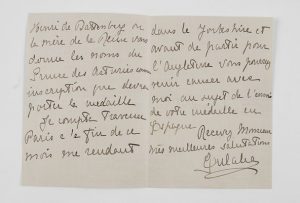 Henri de Battenberg ou
la mère de la Reine vous
donne les noms du
Prince des Asturies comme
inscription que devra
porter la médaille
Je compte traverser
Paris à la fin de ce
mois me rendant
dans le Yorkshire et
avant de partir pour
l'Angleterre vous pourrez
venir causer avec
moi au sujet de l'envoi
de votre médaille en
Espagne
Recevez Monsieur
mes meilleures salutations
Eulalia